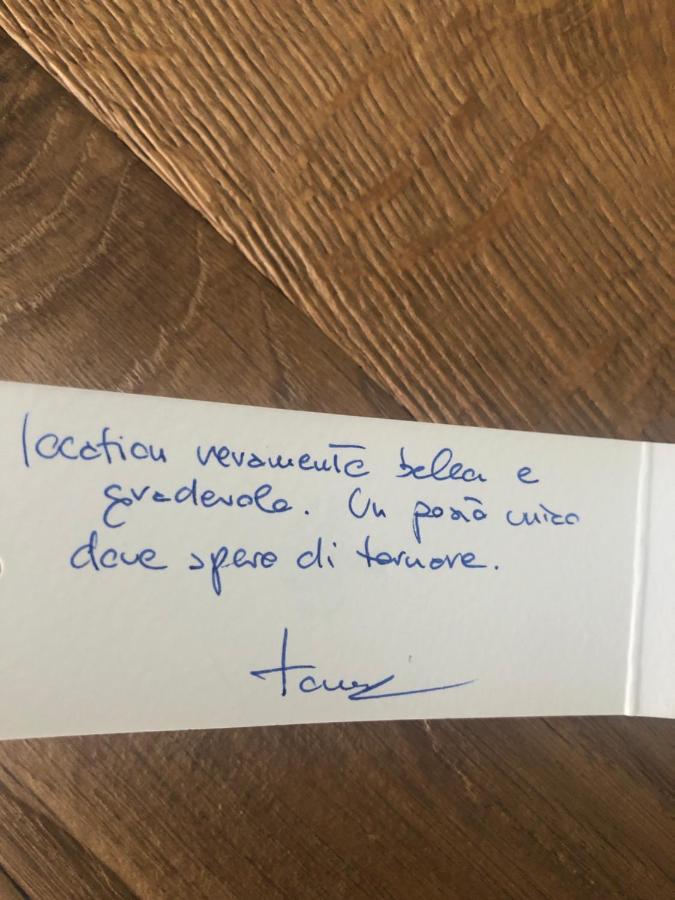 location veramente bella e
gradevole. Un posto unico
dove spero di tornare.